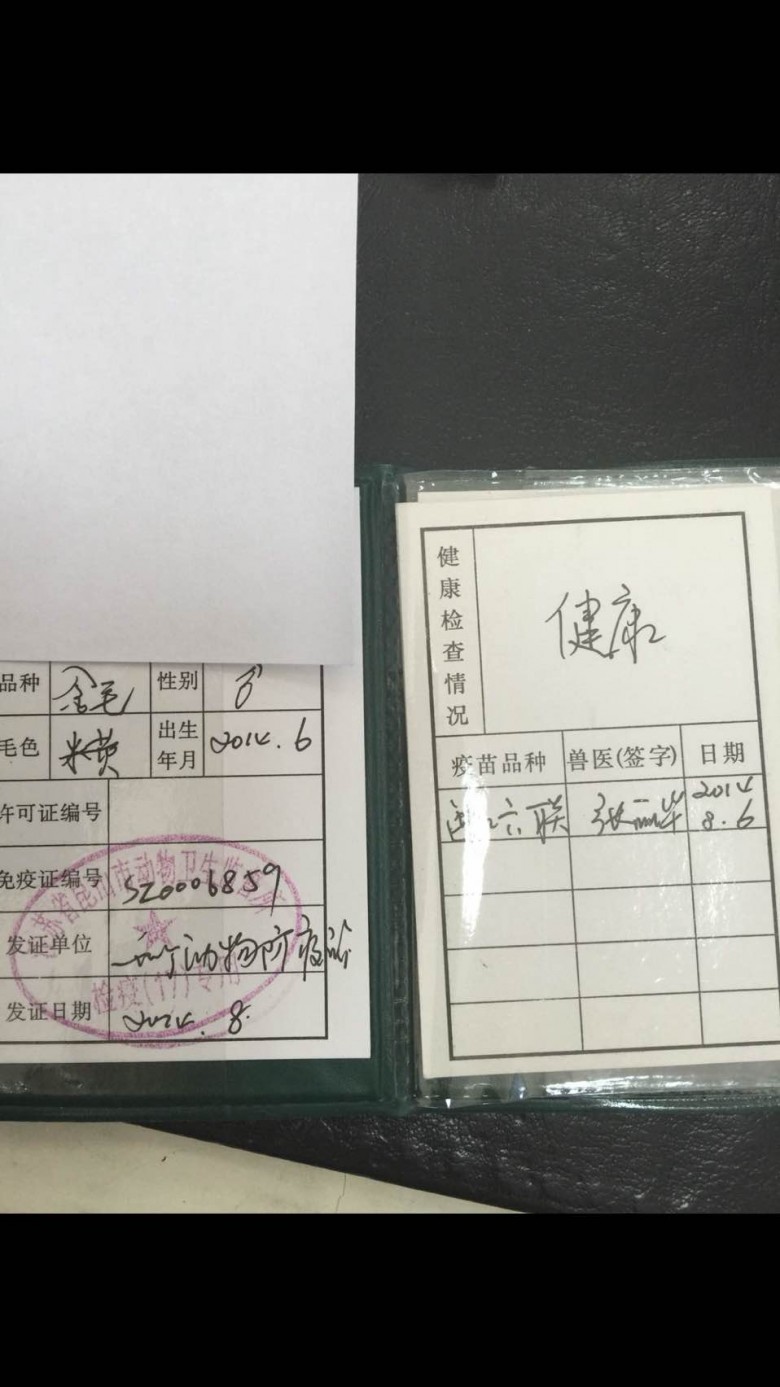 品种 金毛 性别 ♂
毛色 米黄 出生年月 2014.6
许可证编号
免疫证编号 SZ0006859
发证单位 动物防疫
发证日期 2014.8.
检疫(17)专用
健康检查情况 健康
疫苗品种 兽医(签字) 日期
六联 张 2014 8.6